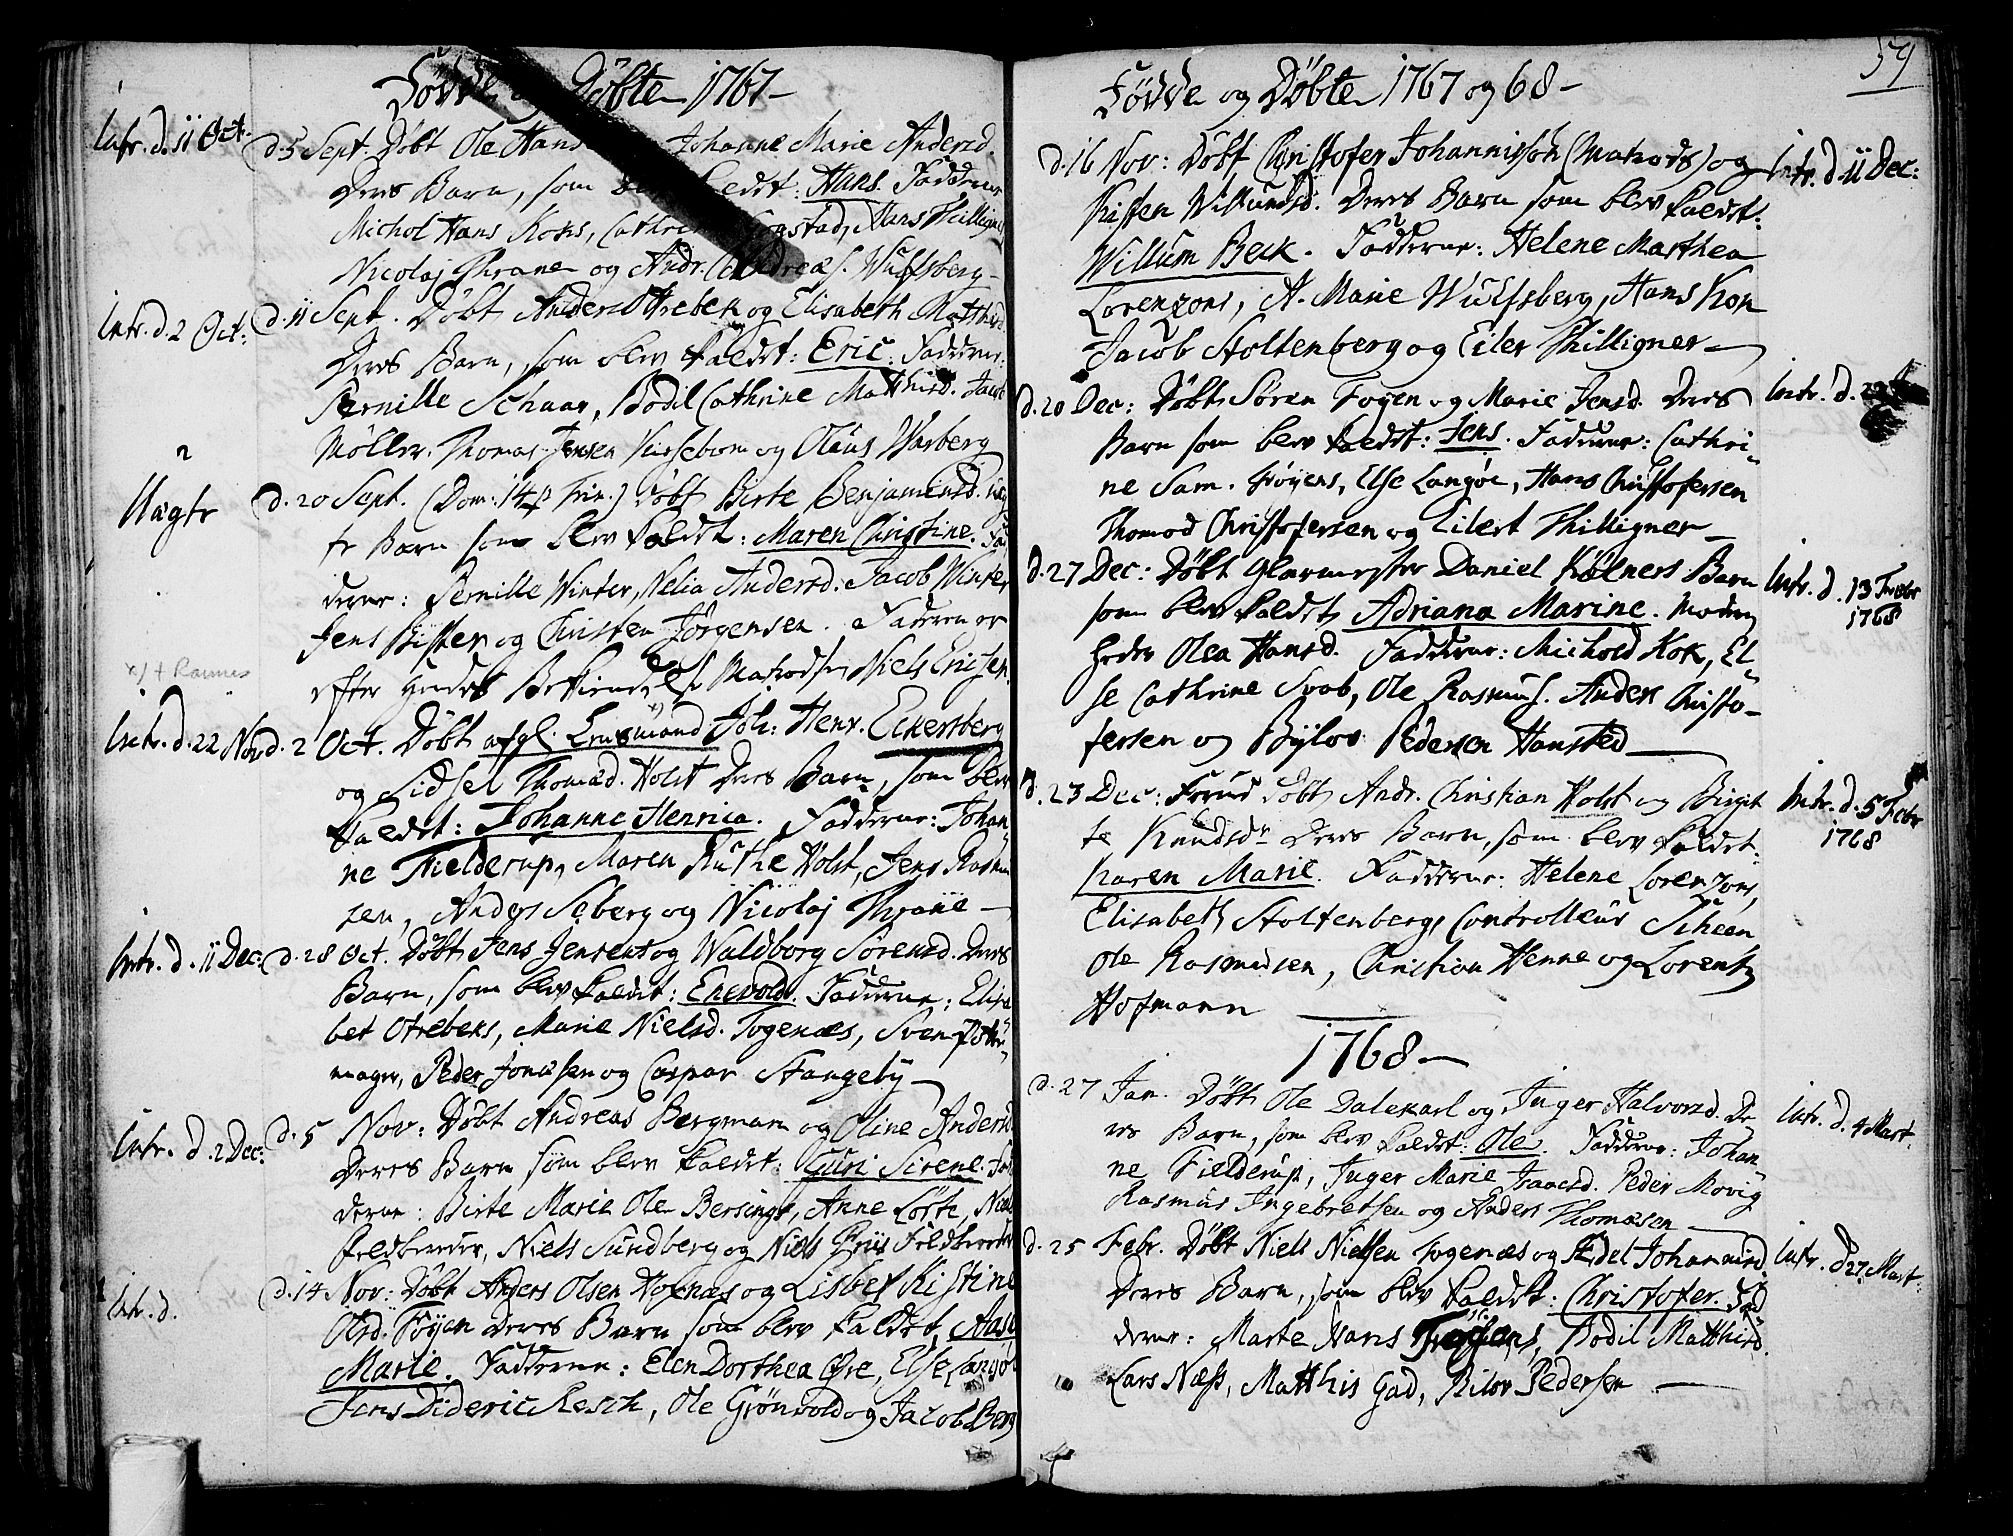 Fødde og Døbte 1767
Intr. d. 11 Oct. d. 5 Sept. Døbt Ole Hans Johanne Marie Andersd.
Deres Barn, som kaldet: Hans. Faddere
Michol Hans Koks, Cathri Hans Thilligner
Nicolaj Thrane og Andr. Wulfsberg
Intr. d. 2 Oct: d. 11 Sept. Døbt Anders Otreben og Elisabeth Matthisd
Deres Barn, som blev kaldet: Eric. Faddere:
Pernille Schaar, Bodil Cathrine Matthisd. Jacob
Møller, Thomas Jensen Kirsebom og Olaus Warberg
Uægte d. 20 Sept. (Dom: 14 p Trin.) Døbt Birte Benjaminsd. Uæg
te Barn som blev kaldet: Maren Christine. Fad
derne: Pernille Winter, Velia Andersd. Jacob Winter
Jens Bister og Christen Jørgensen. Faderen er
x) + Ramnes
efter hendes Bekiendelse Matrods Niels Ericsen.
Intr. d. 22 Nov d. 2 Oct. Døbt afgl. Lensmand x) Joh: Henr. Eckersberg
og Sidsel Thomæd. Holst Deres Barn, som blev
kaldet: Johanne Henrica. Fadderne: Johan-
ne Fielderup, Maren Ruthe Holst, Jens Rasmu
sen, Anders Seberg og Nicolaj Thrane
Intr. d. 11 Dec: d. 28 Oct. Døbt Jens Jensen og Waldborg Sørensd. Deres
Barn, som blev kaldet: Enevold. Fadderne: Elisa
bet Otrebens, Marie Nielsd. Togenæs, Sven Potte-
mager, Peder Jonassen og Caspar Stangeby
Intr. d. 2 Dec: d. 5 Nov: Døbt Andreas Bergman og Oline Andersd
Deres Barn som blev kaldet: Guri Sirene. Fad
derne: Birte Marie Ole Bersings, Anne Løste,
Feldbereder, Niels Sundberg og Niels Friis Feldbereder
Intr. d. d. 14 Nov: Døbt Anders Olsen Hofnæs og Lisbet Kistine
Olsd. Føyen Deres Barn som blev kaldet Aase
Marie. Fadderne: Elen Dorthea Øre, Else Langøe
Jens Dideric Resch, Ole Grönvold og Jacob Berg
59
Fødde og Døbte 1767 og 68
d. 16 Nov: Døbt Christofer Johannisson (Matrods) og Intr. d 11 Dec:
Kisten Willumsd. Deres Barn som blev kaldet:
Willum Beck. Fadderne: Helene Marthea
Lorenzons, A. Marie Wulfsberg, Hans Kon
Jacob Stoltenberg og Eiler Thilligner
d. 20 Dec: Døbt Søren Foyen og Marie Jensd. Deres Intr. d. 22
Barn som blev kaldet: Jens. Fadderne: Cathri-
ne Sam. Frøyens, Else Langøe, Hans Christofersen
Thomod Christofersen og Eilert Thilligner
d. 27 Dec: Døbt Glarmester Daniel Kølners Barn Intr. d. 13 Febr 1768
som blev kaldet Adriana Marine. Moderen
heder Olea Hansd. Fadderne: Michold Kok, El-
se Cathrine Svab, Ole Rasmus. Anders Christo-
fersen og Bylov Pedersen Hansted
d. 23 Dec: Forud Døbt Andr. Christian Holst og Birgit Intr. d. 5 Febr 1768
te Knudsdr Deres Barn, som blev kaldet:
Karen Marie. Fadderne: Helene Lorenzons,
Elisabeth Stoltenberg, Controlleur Scheen
Ole Rasmussen, Christian Henne og Lorentz
Hofmann
1768
d. 27 Jan. Døbt Ole Dalekarl og Inger Halvorsd. De- Intr. d. 4 Mart.
res Barn, som blev kaldet: Ole. Fadderne: Johan-
ne Fielderup, Inger Marie Isaacsd. Peder Movig
Rasmus Ingebretsen og Anders Thomæsen
d. 25 Febr. Døbt Niels Nielsen Togenæs og Edel Johannisd. Intr. d 27 Mart.
Deres Barn, som blev kaldet: Christofer. Fad
derne: Marte Hans Frøyens, Bodil Matthisd.
Lars Næss, Matthis Gad, Bilov Pedersen